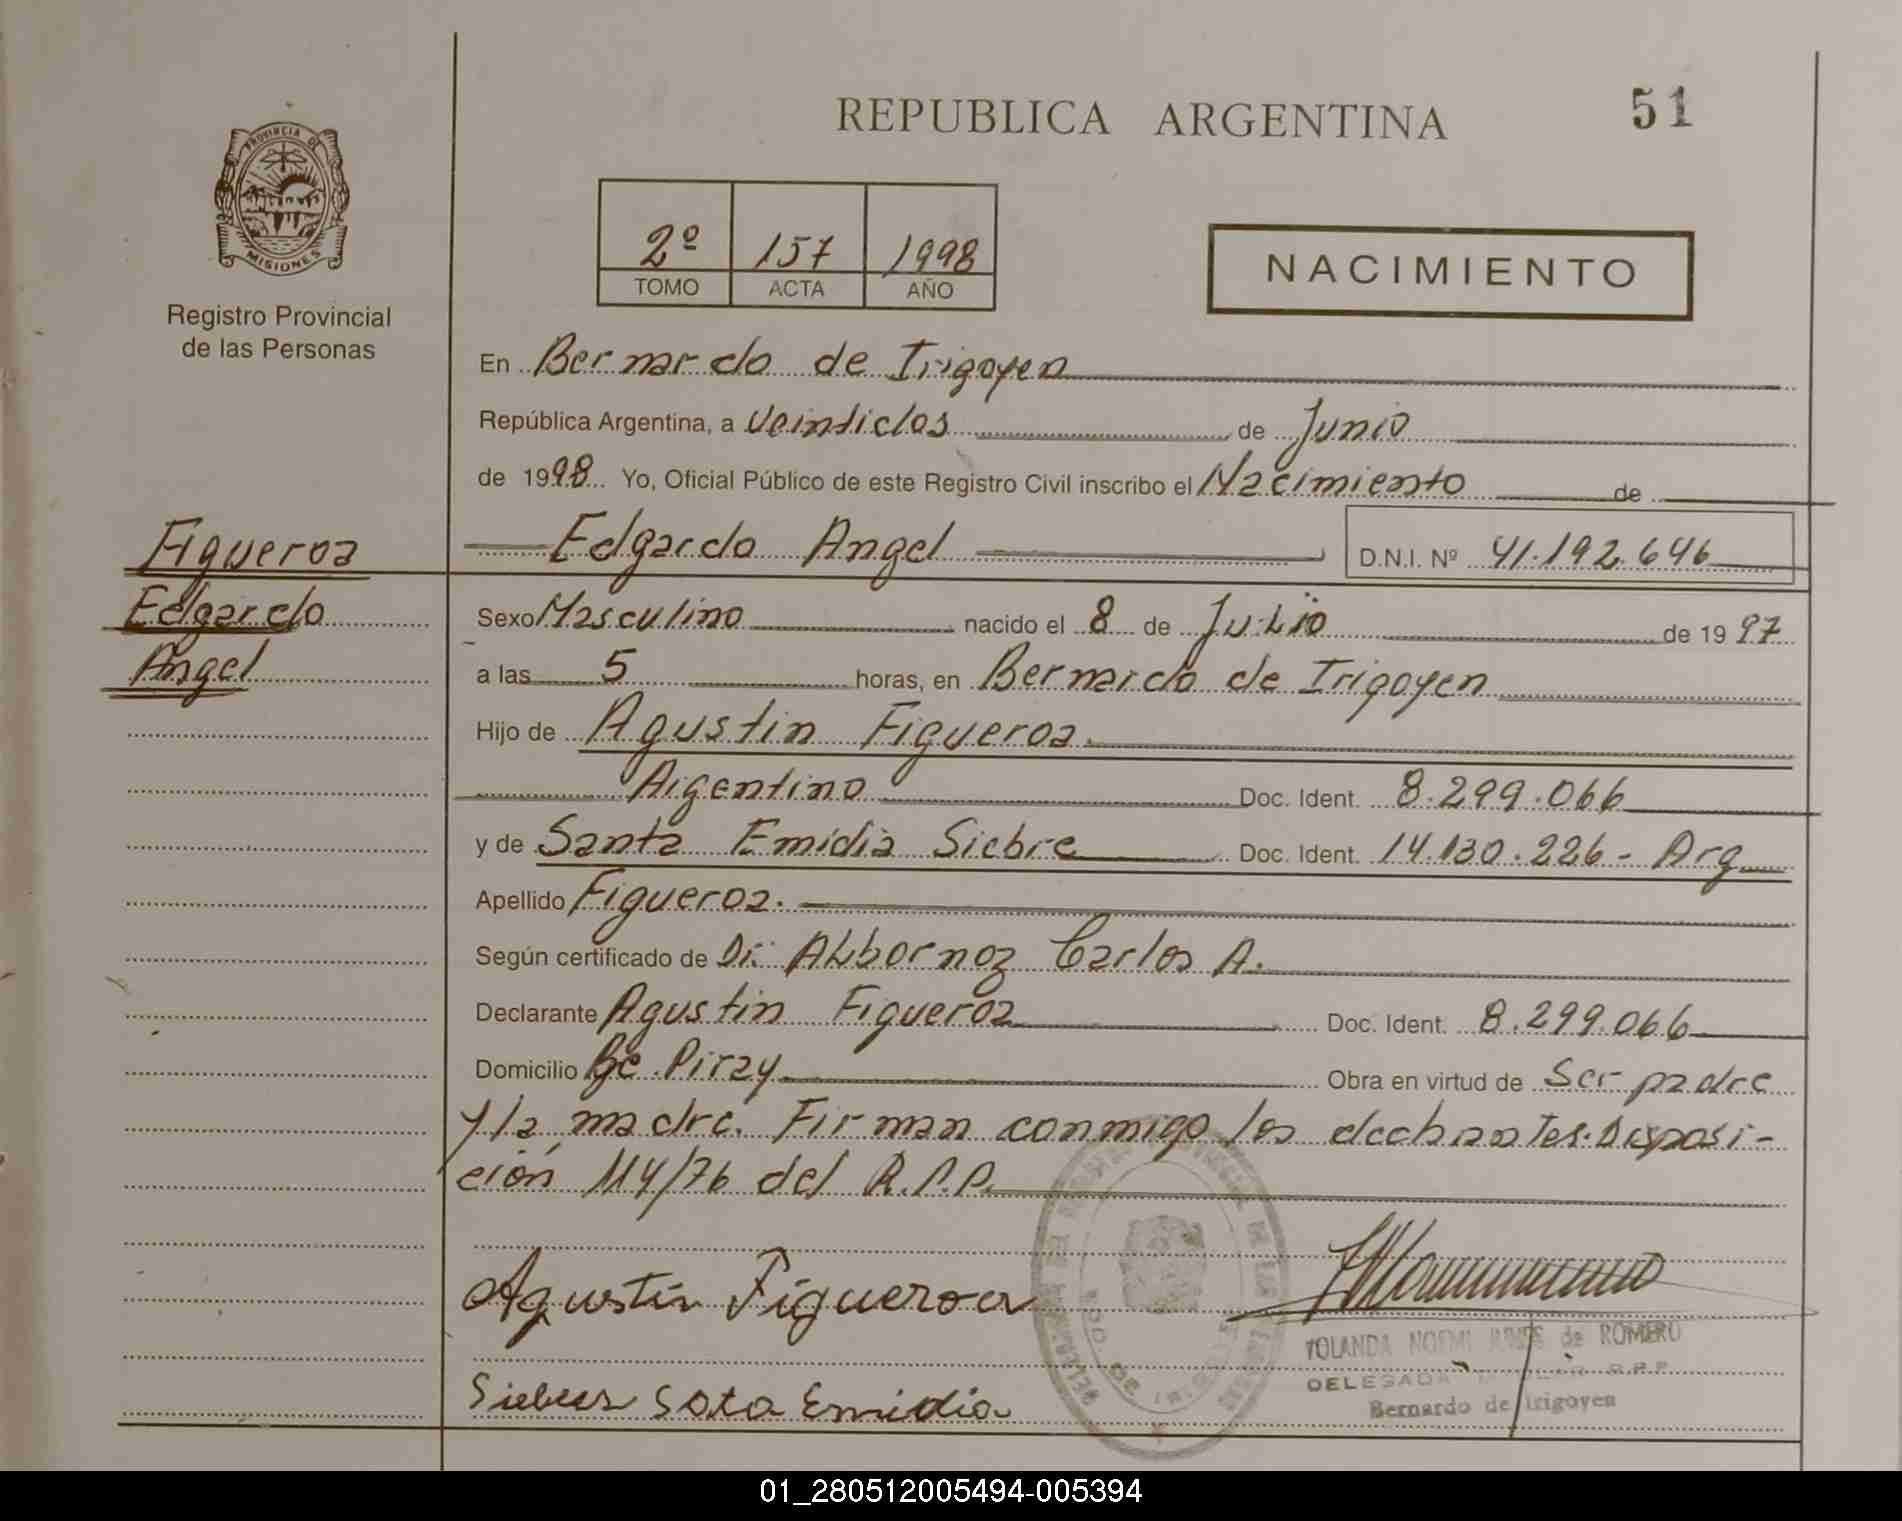 REPUBLICA ARGENTINA
51
PROVINCIA DE
MISIONES
Registro Provincial
de las Personas
2º 157 1998
TOMO ACTA AÑO
NACIMIENTO
En Bernardo de Irigoyen
República Argentina, a Veintidos de Junio
de 1998 Yo, Oficial Público de este Registro Civil inscribo el Nacimiento de
Figueroa
Edgardo
Angel
Edgardo Angel D.N.I. Nº 41.192.646
Sexo Masculino nacido el 8 de Julio de 1997
a las 5 horas, en Bernardo de Irigoyen
Hijo de Agustin Figueroa
Argentino Doc. Ident. 8.299.066
y de Santa Emidia Siebre Doc. Ident. 14.130.226 - Arg
Apellido Figueroa.
Según certificado de Dr. Albornoz Carlos A.
Declarante Agustin Figueroa Doc. Ident. 8.299.066
Domicilio Piray Obra en virtud de Ser padre
y la madre. Firman conmigo los declarantes. Disposi-
ción 114/76 del R.P.P.
Agustín Figueroa
Sata Emidia
YOLANDA NOEMI de ROMERO
DELEGADA R.P.P.
Bernardo de Irigoyen
01_280512005494-005394